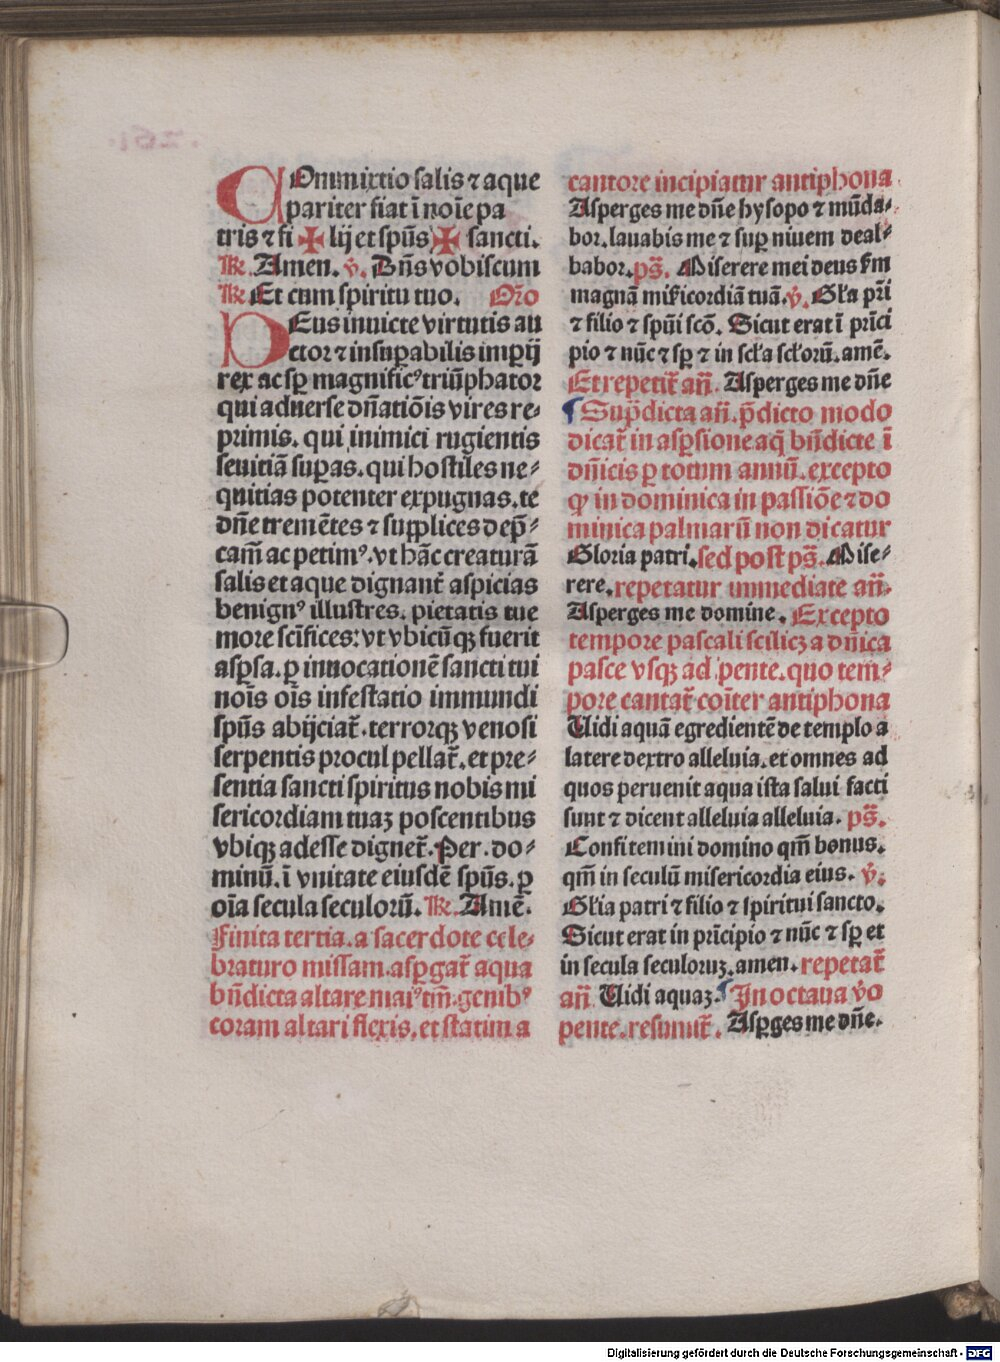 COmmixtio salis ⁊ aque
pariter fiat ī noīe pa
tris ⁊ fi ✠ lij et spūs ✠ sancti.
℟. Amen. v̄. Dn̄s vobiscum
℟ Et cum spiritu tuo. Or̄o
DEus inuicte virtutis au
ctor ⁊ insuꝑabilis imperij
rex ac sꝑ magnificꝰ triūphator
qui aduerse dn̄atiōis vires re⸗
primis. qui inimici rugientis
seuitiā suꝑas. qui hostiles ne⸗
quitias potenter expugnas. te
dn̄e tremētes ⁊ supplices dep̄⸗
cam̄ ac petimꝰ. vt hāc creaturā
salis et aque dignant̄ aspicias
benignꝰ illustres. pietatis tue
more scīfices: vt vbicūqꝫ fuerit
asꝑsa. ꝑ inuocationē sancti tui
noīs oīs infestatio immundi
spūs abijciat̄. terrorqꝫ venosi
serpentis procul pellat̄. et pre⸗
sentia sancti spiritus nobis mi
sericordiam tuaꝫ poscentibus
vbiqꝫ adesse dignet̄. Per. do⸗
minū. ī vnitate eiusdē spūs. ꝑ
oīa secula seculorū. ℟. Amē.
Finita tertia. a sacerdote cele⸗
braturo missam. asꝑgat̄ aqua
bn̄dicta altare maiꝰ tm̄. genibꝰ
coram altari flexis. et statim a
cantore incipiatur antiphona
Asperges me dn̄e hysopo ⁊ mūda⸗
bor. lauabis me ⁊ suꝑ niuem deal⸗
babor. ps̄. Miserere mei deus s̄m
magnā mīḱicordiā tuā. v̄. Gl̄a pr̄i
⁊ filio ⁊ spūi scō. Sicut erat ī pr̄ici
pio ⁊ nūc ⁊ sꝑ ⁊ in scl̄a scl̄orū. amē.
Et repetit̄ an̄. Asperges me dn̄e
¶ Supͣdicta an̄. p̄dicto modo
dicat̄ in asꝑsione aq̄ bn̄dicte ī
dn̄icis ꝑ totum annū. excepto
ꝙ in dominica in passiōe ⁊ do
minica palmarū non dicatur
Gloria patri. sed post ps̄. Mise⸗
rere. repetatur immediate an̄.
Asperges me domine. Excepto
tempore pascali scilicꝫ a dn̄ica
pasce vsqꝫ ad pente. quo tem⸗
pore cantat̄ cōiter antiphona
Uidi aquā egredientē de templo a
latere dextro alleluia. et omnes ad
quos peruenit aqua ista salui facti
sunt ⁊ dicent alleluia alleluia. ps̄.
Confitemini domino qm̄ bonus.
qm̄ in seculū misericordia eius. v̄.
Gl̄ia patri ⁊ filio ⁊ spiritui sancto.
Sicut erat in pr̄icipio ⁊ nūc ⁊ sꝑ et
in secula seculoruꝫ. amen. repetat̄
an̄. Uidi aquaꝫ. ¶ In octaua v̄o
pente. resumit̄. Asꝑges me dn̄e.
Digitalisierung gefördert durch die Deutsche Forschungsgemeinschaft - DFG